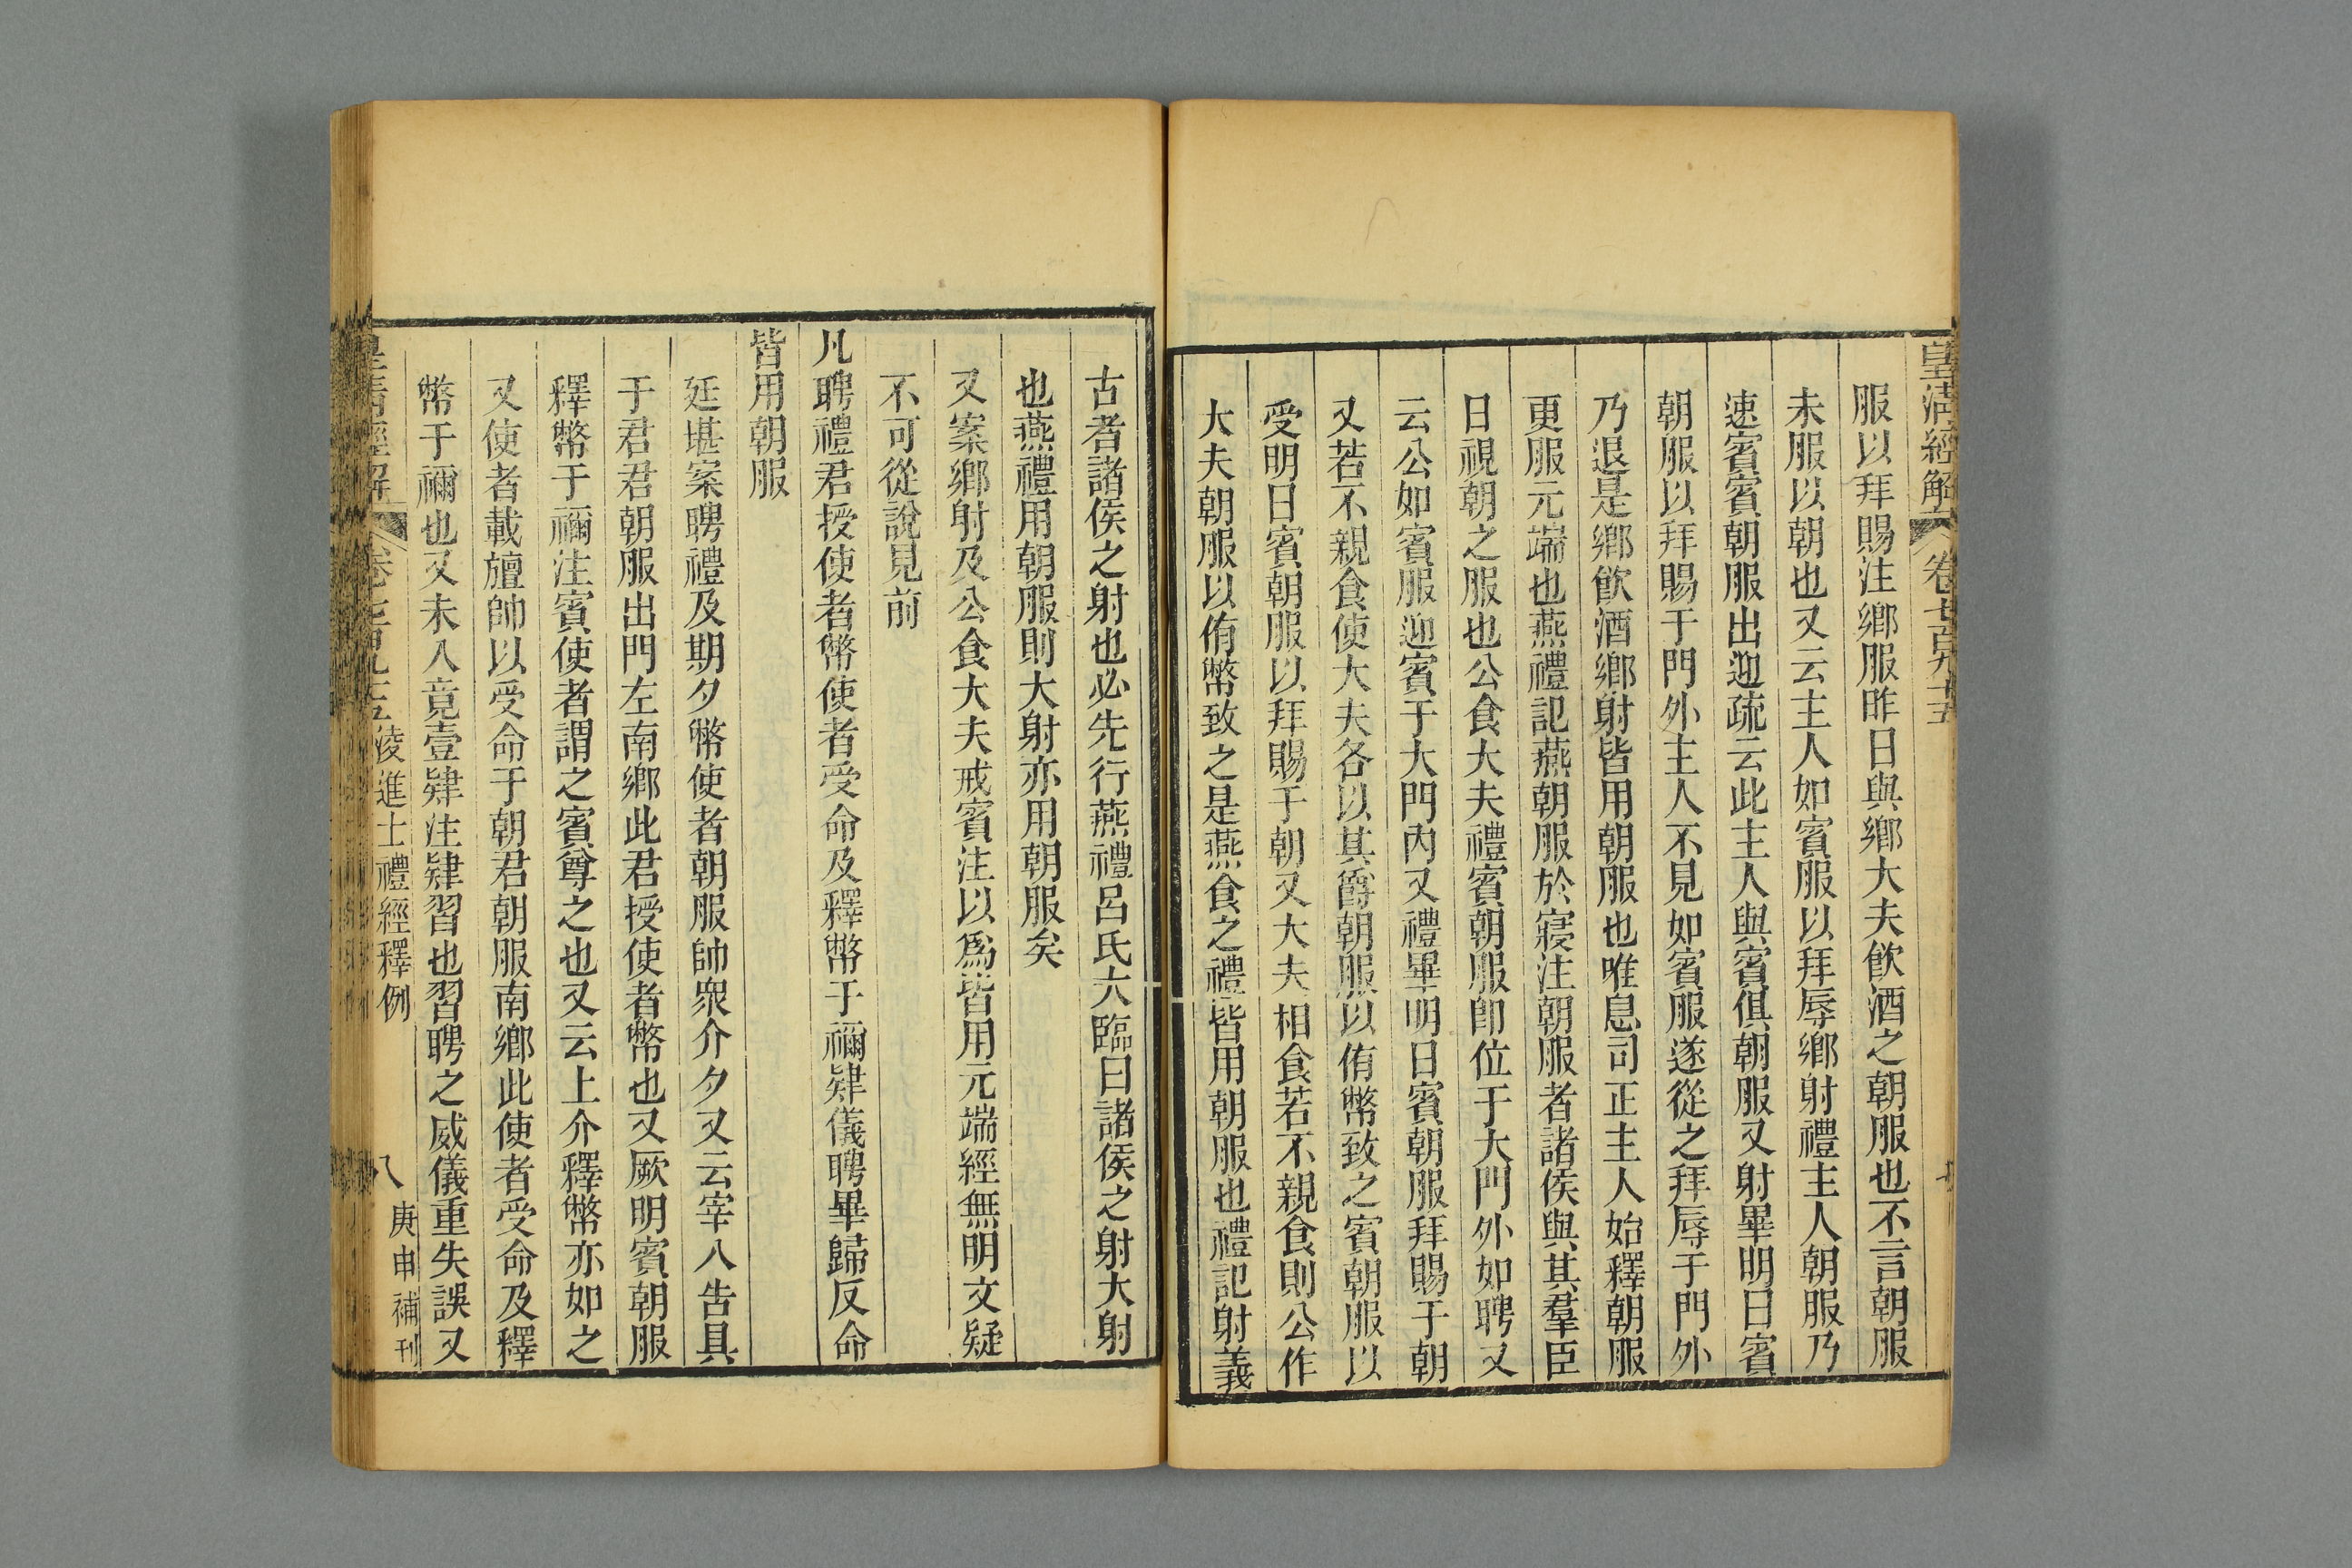 皇清經解 卷七百九十五
服以拜賜注鄉服昨日與鄉大夫飮酒之朝服也不言朝服
未服以朝也又云主人如賓服以拜辱鄉射禮主人朝服乃
速賓賓朝服出迎疏云此主人與賓俱朝服又射畢明日賓
朝服以拜賜于門外主人不見如賓服遂從之拜辱于門外
乃退是鄉飮酒鄉射皆用朝服也唯息司正主人始釋朝服
更服元端也燕禮記燕朝服於寢注朝服者諸侯與其羣臣
日視朝之服也公食大夫禮賓朝服卽位于大門外如聘又
云公如賓服迎賓于大門內又禮畢明日賓朝服拜賜于朝
又若不親食使大夫各以其爵朝服以侑幣致之賓朝服以
受明日賓朝服以拜賜于朝又大夫相食若不親食則公作
大夫朝服以侑幣致之是燕食之禮皆用朝服也禮記射義
古者諸侯之射也必先行燕禮呂氏大臨曰諸侯之射大射
也燕禮用朝服則大射亦用朝服矣
又案鄉射及公食大夫戒賓注以爲皆用元端經無明文疑
不可從說見前
凡聘禮君授使者幣使者受命及釋幣于禰肄儀聘畢歸反命
皆用朝服
廷堪案聘禮及期夕幣使者朝服帥眾介夕又云宰入告具
于君君朝服出門左南鄉此君授使者幣也又厥明賓朝服
釋幣于禰注賓使者謂之賓尊之也又云上介釋幣亦如之
又使者載旜帥以受命于朝君朝服南鄉此使者受命及釋
幣于禰也又未入竟壹肄注肄習也習聘之威儀重失誤又
皇清經解 卷七百九十五 淩進士禮經釋例 八 庚申補刊